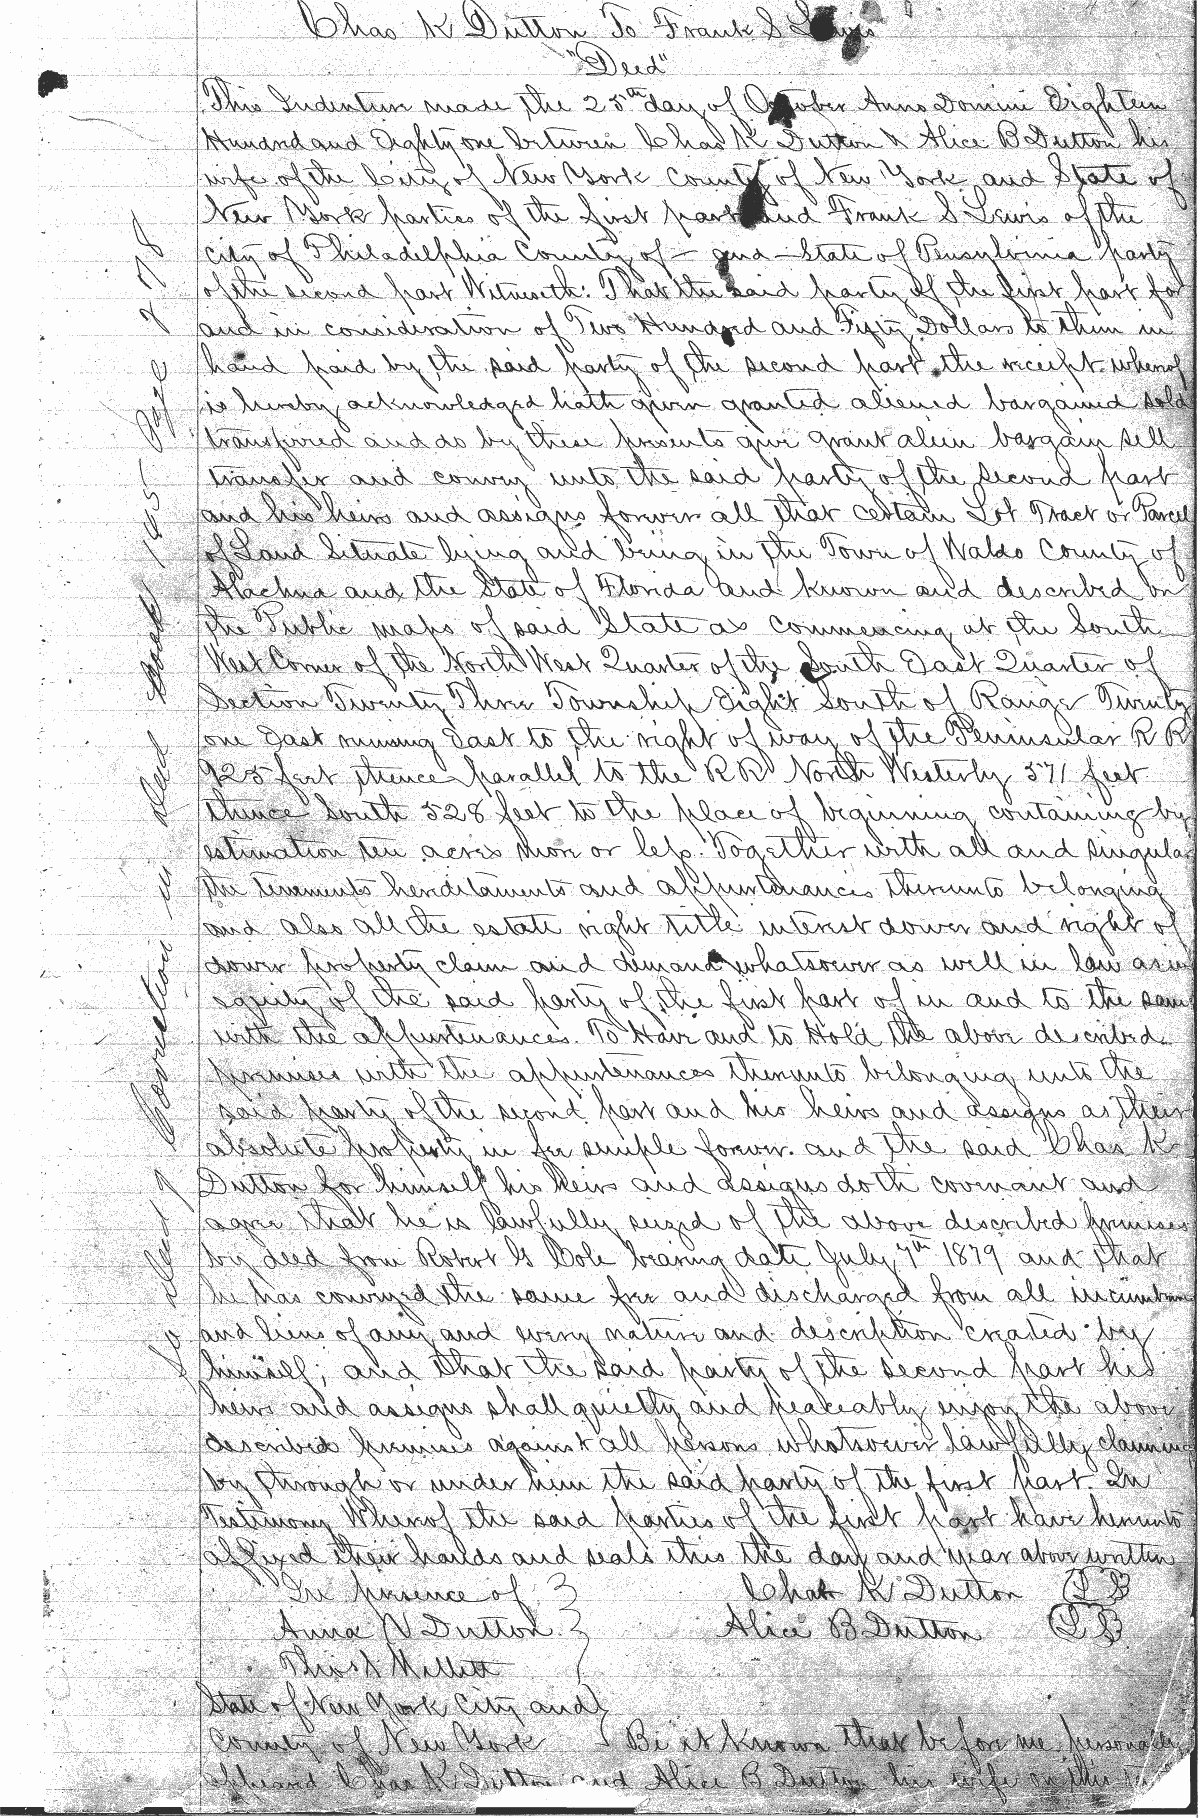 Chas K Dutton To Frank S Lewis
"Deed"
This Indenture made the 25th day of October Anno Domini Eighteen
Hundred and Eighty one between Chas K Dutton & Alice B Dutton his
wife of the City of New York County of New York and State of
New York parties of the first part and Frank S Lewis of the
city of Philadelphia County of — and — State of Pensylvinia party
of the second part Witnesseth: That the said party of the first part for
and in consideration of Two Hundred and Fifty Dollars to them in
hand paid by the said party of the second part the receipt whereof
is hereby acknowledged hath given granted aliened bargained sold
transfered and do by these presents give grant alien bargain sell
transfer and convey unto the said party of the second part
and his heirs and assigns forever all that certain Lot Tract or Parcel
of Land Situate lying and being in the Town of Waldo County of
Alachua and the State of Florida and known and described on
the Public maps of said State as commencing at the South
West Corner of the North West Quarter of the South East Quarter of
Section Twenty Three Township Eight South of Range Twenty
one East running East to the right of way of the Peninsular R R
925 feet thence parallel to the R R North Westerly 571 feet
thence South 528 feet to the place of beginning containing by
estimation ten acres more or less. Together with all and singular
the tenements hereditaments and appurtenances thereunto belonging
and also all the estate right title interest dower and right of
dower property claim and demand whatsoever as well in law as in
equity of the said party of the first part of in and to the same
with the appurtenances. To Have and to Hold the above described
premises with the appurtenances thereunto belonging unto the
said party of the second part and his heirs and assigns as their
absolute property in fee simple forever. and the said Chas K
Dutton for himself his heirs and assigns doth covenant and
agree that he is lawfully seized of the above described premises
by deed from Robert G Cole bearing date July 7th 1879 and that
he has conveyed the same free and discharged from all
and liens of any and every nature and description created by
himself; and that the said party of the second part his
heirs and assigns shall quietly and peaceably enjoy the above
described premises against all persons whatsoever lawfully claiming
by through or under him the said party of the first part. In
Testimony Whereof the said parties of the first part have hereunto
affixed their hands and seals this the day and year above written
In presence of Chas K Dutton LS
Anna V Dutton Alice B Dutton LS
Thos L Millett
State of New York City and
County of New York Be it Known that before me personally
appeared Chas K Dutton and Alice B Dutton his wife on this
See Deed of Correction in Deed Book 145 Page 278